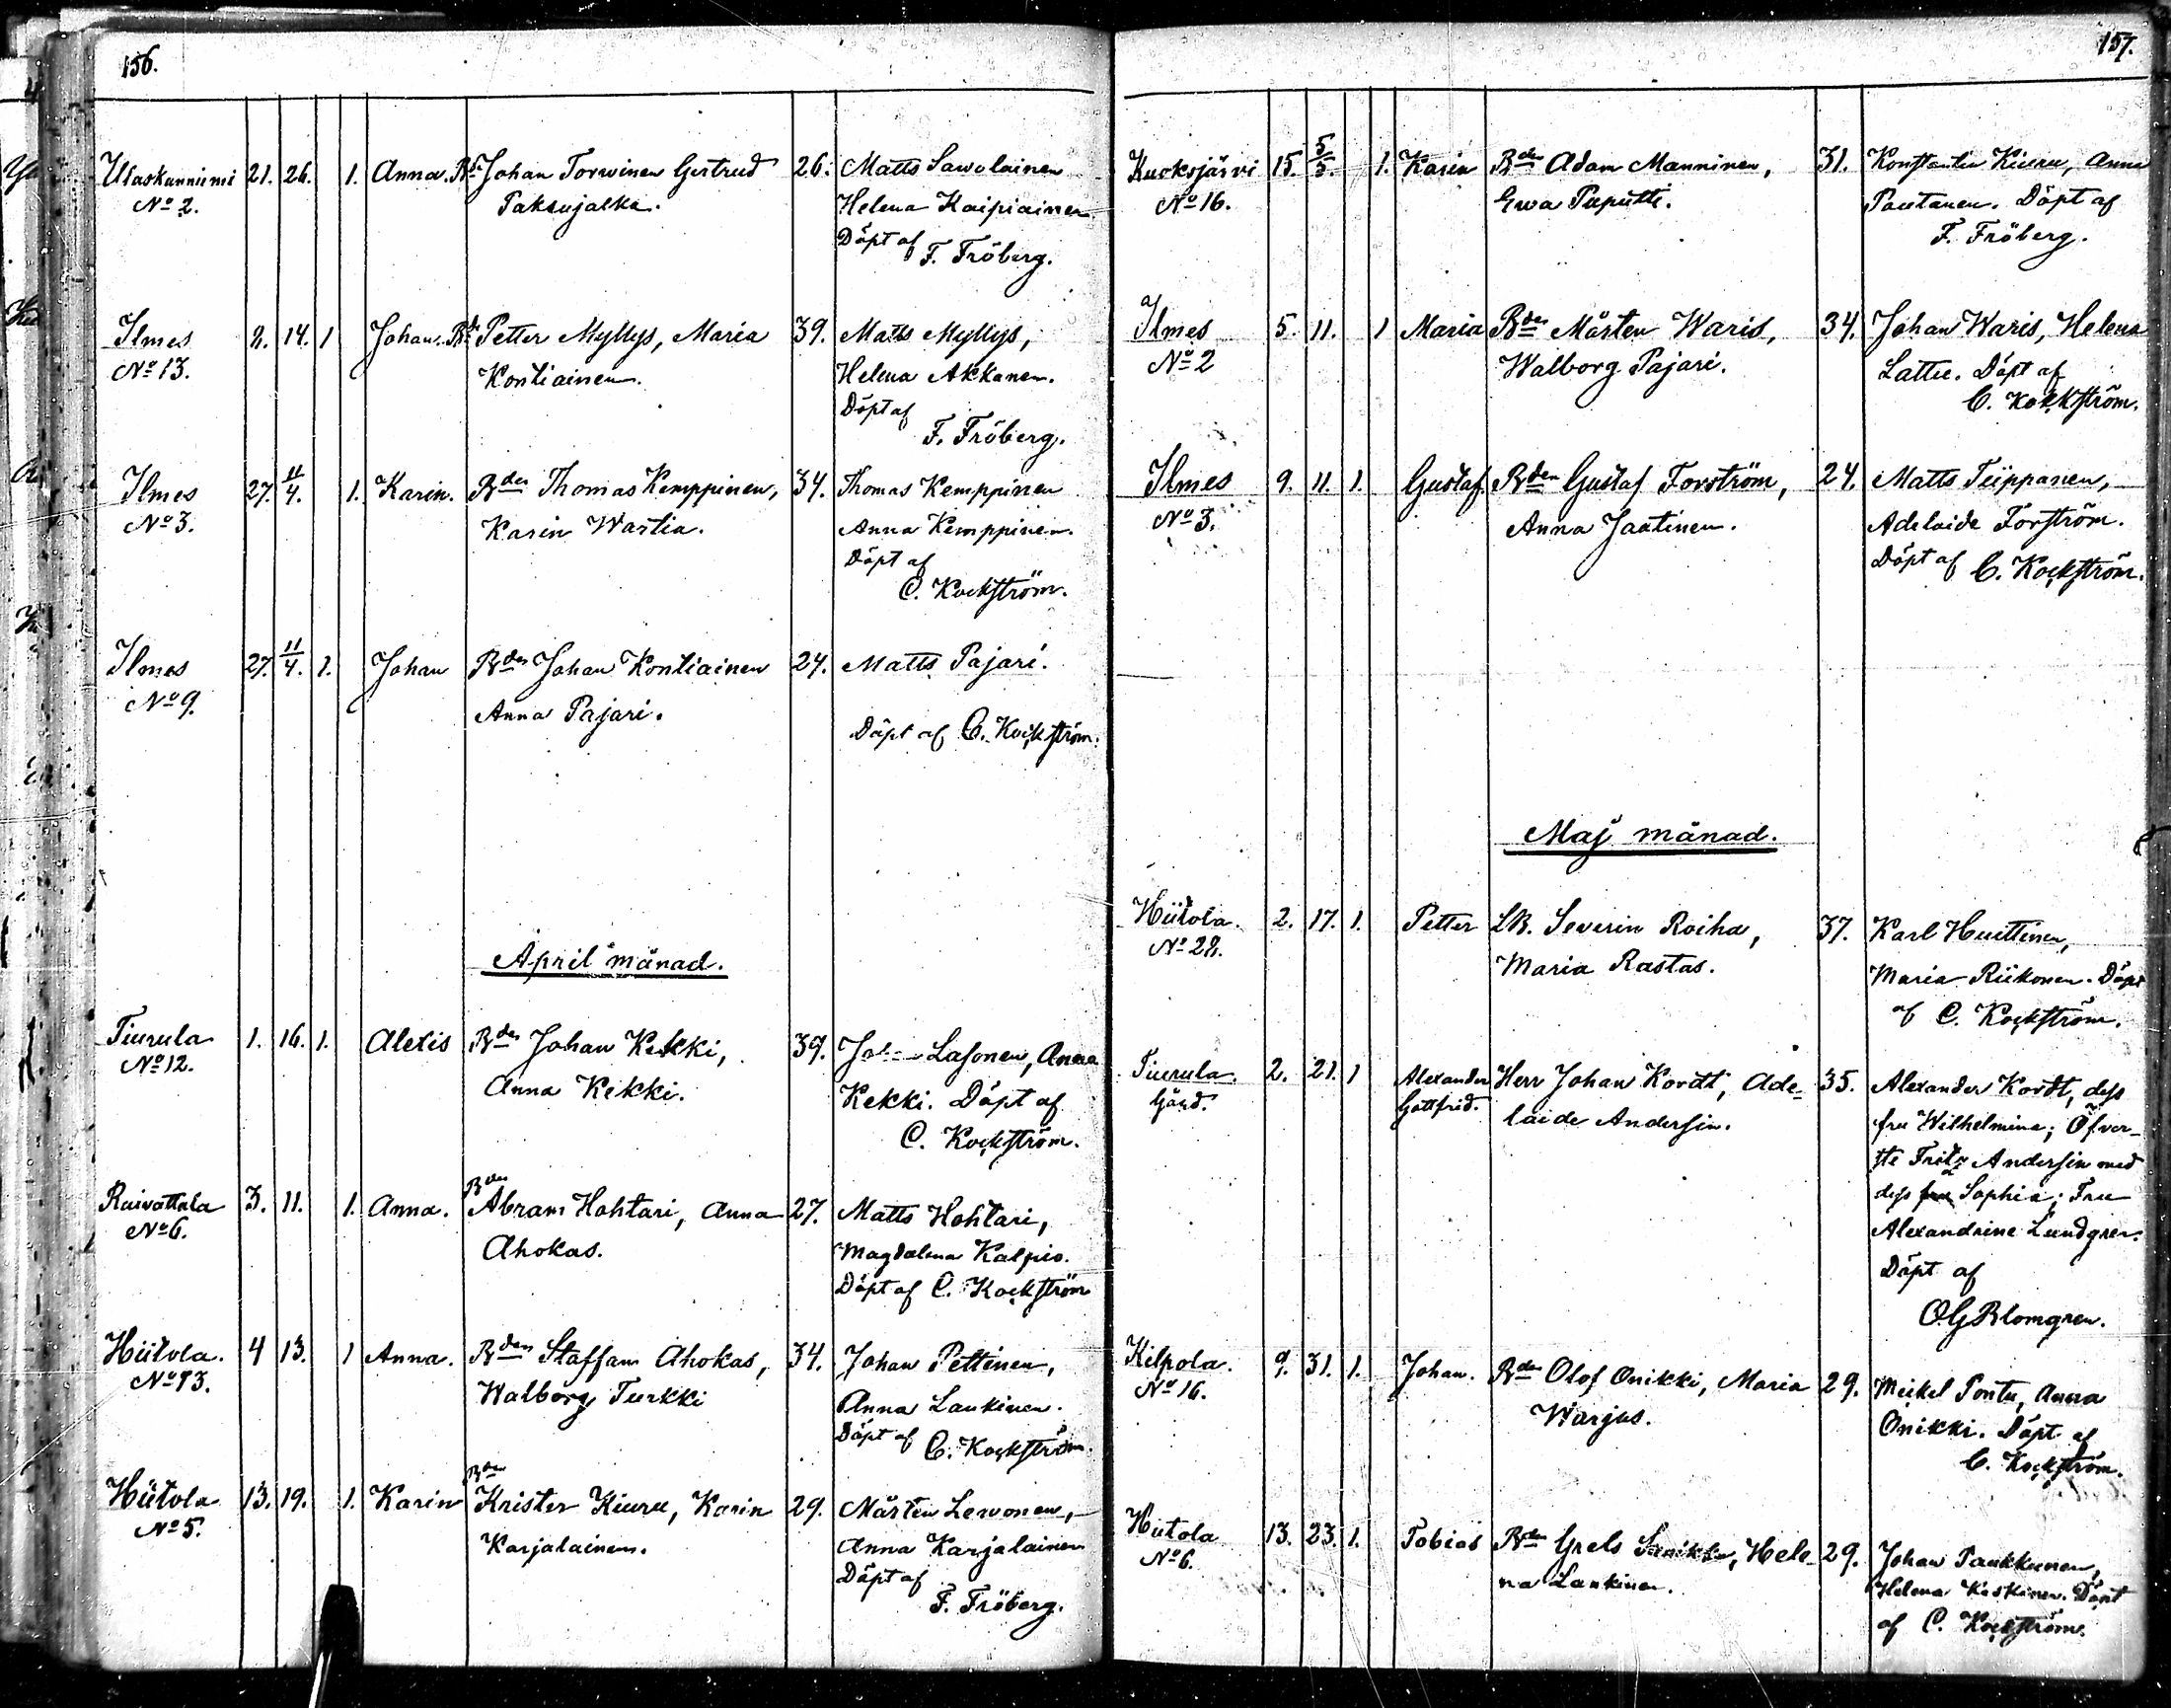 156.
Ulaskanniemi 21. 26. 1. Anna. Bd Johan Torwinen Gertrud 26. Matts Sawolainen
No 2. Paksujalka. Helena Kaipiainen.
Döpt af F. Fröberg.
Ilmes 2. 14. 1 Johan. Bd Petter Myllys, Maria 39. Matts Myllys,
No 13. Kontiainen. Helena Akkanen.
Döpt af
F. Fröberg.
Ilmes 27. 11/4. 1. Karin. Bden Thomas Kemppinen, 34. Thomas Kemppinen
No 3. Karin Wastia. Anna Kemppinen.
Döpt af
C. Kockström.
Ilmes 27. 11/4. 1. Johan Bden Johan Kontiainen 24. Matts Pajari.
No 9. Anna Pajari.
Döpt af C. Kockström.
April månad.
Tiurula 1. 16. 1. Alexis Bden Johan Kekki, 39. Lasonen, Anna
No 12. Anna Kekki. Kekki. Döpt af
C. Kockström.
Raivattala 3. 11. 1. Anna. Bden Abram Hohtari, Anna 27. Matts Hohtari,
No 6. Ahokas. Magdalena Kalpio.
Döpt af C. Kockström
Hiitola. 4 13. 1 Anna. Bden Staffan Ahokas, 34. Johan Pettinen,
No 13. Walborg Turkki Anna Laukinen.
Döpt af C. Kockström.
Hiitola 13. 19. 1. Karin Bden Krister Kiuru, Karin 29. Mårten Lewonen,
No 5. Karjalainen. Anna Karjalainen
Döpt af
F. Fröberg.
157.
Kucksjärvi 15. 5/5. 1. Karin Bden Adam Manninen, 31. Konstantin Kiuru, Anna
No 16. Ewa Puputti. Pautanen. Döpt af
F. Fröberg.
Ilmes 5. 11. 1 Maria Bden Mårten Waris, 34. Johan Waris, Helena
No 2 Walborg Pajari. Lattu. Döpt af
C. Kockström.
Ilmes 9. 11. 1. Gustaf Bden Gustaf Forström, 24. Matts Tiippanen,
No 3. Anna Jaatinen. Adelaide Forström.
Döpt af C. Kockström.
Maj månad.
Hiitola. 2. 17. 1. Petter LB. Severin Roiha, 37. Karl Huttinen,
No 28. Maria Rastas. Maria Riikonen. Döpt
af C. Kockström.
Tiurula. 2. 21. 1 Alexander Herr Johan Kordt, Ade- 35. Alexander Kordt, dess
Gård. Gottfrid. laide Andersin. fru Wilhelmina; Öfver-
ste Fritz Andersin med
dess fru Sophia; Fru
Alexandrine Lundgren.
Döpt af
OG Blomgren.
Kilpola. 9. 31. 1. Johan. Bden Olof Onikki, Maria 29. Meikel Pontu, Anna
No 16. Warjus. Onikki. Döpt af
C. Kockström.
Hiitola 13. 23. 1. Tobias Bden Grels Hele- 29. Johan Paukkunen,
No 6. na Laukinen. Helena Keskinen. Döpt
af C. Kockström.